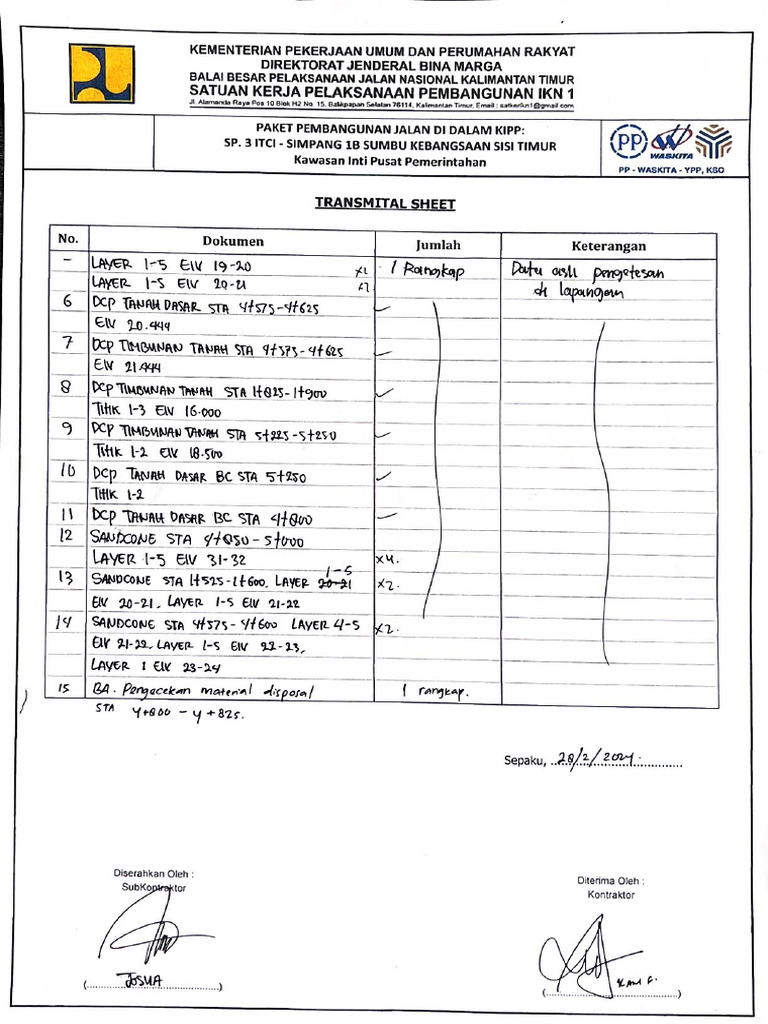 KEMENTERIAN PEKERJAAN UMUM DAN PERUMAHAN RAKYAT
DIREKTORAT JENDERAL BINA MARGA
BALAI BESAR PELAKSANAAN JALAN NASIONAL KALIMANTAN TIMUR
SATUAN KERJA PELAKSANAAN PEMBANGUNAN IKN 1
Jl. Alamanda Raya Pos 10 Blok H2 No. 15, Balikpapan Selatan 76114, Kalimantan Timur, Email : satkerikn1@gmail.com
PAKET PEMBANGUNAN JALAN DI DALAM KIPP:
SP. 3 ITCI - SIMPANG 1B SUMBU KEBANGSAAN SISI TIMUR
Kawasan Inti Pusat Pemerintahan
PP WASKITA
PP - WASKITA - YPP, KSO
TRANSMITAL SHEET
No. Dokumen Jumlah Keterangan
- LAYER 1-5 Elv 19-20 x2 1 Rangkap Data asli pengetesan
LAYER 1-5 Elv 20-21 x2 di lapangan
6 DCP TANAH DASAR STA 4+575-4+625 ✓
Elv 20.444
7 DCP TIMBUNAN TANAH STA 4+575-4+625 ✓
Elv 21.444
8 DCP TIMBUNAN TANAH STA 1+825-1+900 ✓
Titik 1-3 Elv 16.000
9 DCP TIMBUNAN TANAH STA 5+225-5+250 ✓
Titik 1-2 Elv 18.500
10 DCP TANAH DASAR BC STA 5+250 ✓
Titik 1-2
11 DCP TANAH DASAR BC STA 4+800 ✓
12 SANDCONE STA 4+850-5+000
LAYER 1-5 Elv 31-32 x4.
13 SANDCONE STA 1+525-1+600, LAYER 20-21 1-5 x2.
Elv 20-21, LAYER 1-5 Elv 21-22
14 SANDCONE STA 4+575-4+600 LAYER 4-5 x2.
Elv 21-22, LAYER 1-5 Elv 22-23,
LAYER 1 Elv 23-24
15 BA. Pengecekan material disposal 1 rangkap.
STA 4+800 - 4+825.
Sepaku, 28/2/2024.
Diserahkan Oleh :
SubKontraktor
Diterima Oleh :
Kontraktor
(JOSUA)